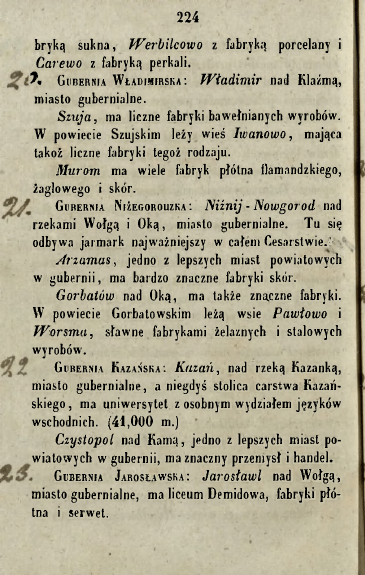 224
bryką sukna, Werbilcowo z fabryką porcelany i
Carewo z fabryką perkali.
20. Gubernia Władimirska: Władimir nad Klaźmą,
miasto gubernialne.
Szuja, ma liczne fabryki bawełnianych wyrobów.
W powiecie Szujskim leży wieś Iwanowo, mająca
takoż liczne fabryki tegoż rodzaju.
Murom ma wiele fabryk płótna flamandzkiego,
żaglowego i skór.
21. Gubernia Niżegorouzka: Niźnij-Nowgorod nad
rzekami Wołgą i Oką, miasto gubernialne. Tu się
odbywa jarmark najważniejszy w całem Cesarstwie.
Arzamas, jedno z lepszych miast powiatowych
w gubernii, ma bardzo znaczne fabryki skór.
Gorbatów nad Oką, ma także znaczne fabryki.
W powiecie Gorbatowskim leżą wsie Pawłowo i
Worsma, sławne fabrykami żelaznych i stalowych
wyrobów.
22 Gubernia Kazańska: Kazań, nad rzeką Kazanką,
miasto gubernialne, a niegdyś stolica carstwa Kazań-
skiego, ma uniwersytet z osobnym wydziałem języków
wschodnich. (41,000 m.)
Czystopol nad Kamą, jedno z lepszych miast po-
wiatowych w gubernii, ma znaczny przemysł i handel.
23. Gubernia Jarosławska: Jarosławl nad Wołgą,
miasto gubernialne, ma liceum Demidowa, fabryki płó-
tna i serwet.